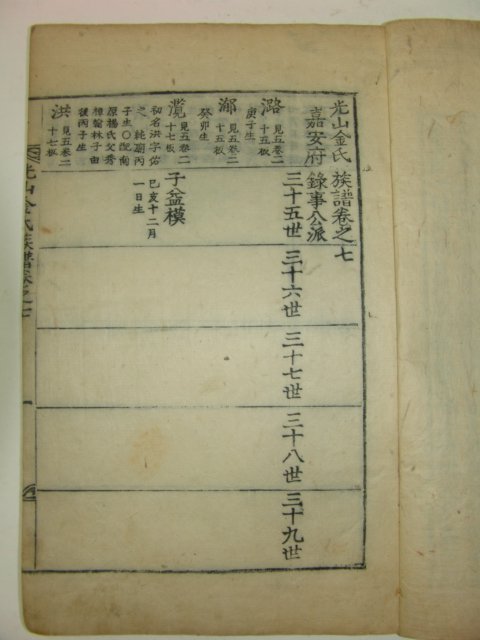 光山金氏族譜卷之七
嘉安府錄事公派
三十五世
三十六世
三十七世
三十八世
三十九世
潞 見五卷二十五板
庚子生
漷 見五卷二十五板
癸卯生
灠 見五卷二十七板
初名洪字佑之純廟丙子生○
原楊氏父秀
樟齡林子由
後丙子生
子益模
己亥十二月一日生
洪 見五卷二十七板
光山金氏族譜卷之七
一